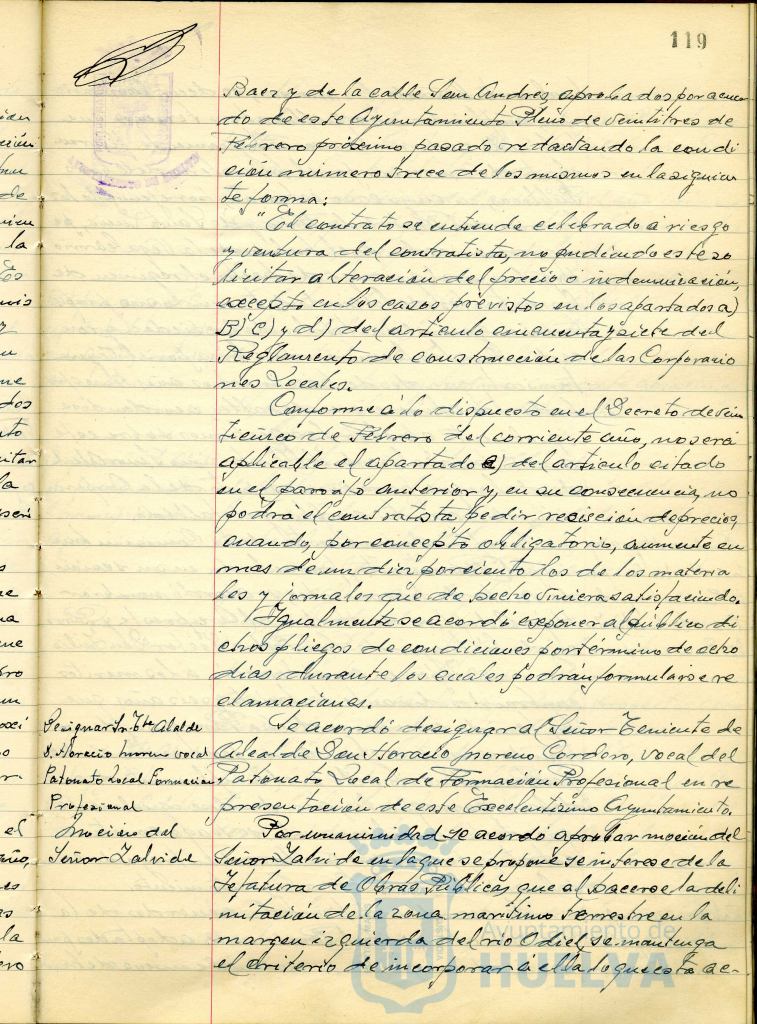 119
Baez y de la calle San Andrés, aprobados por acuer
do de este Ayuntamiento Pleno de veintitres de
Febrero próximo pasado redactando la condi
ción número trece de los mismos en la siguien
te forma:
"El contrato se entiende celebrado a riesgo
y ventura del contratista, no pudiendo este so
licitar alteración del precio o indemnización,
excepto en los casos previstos en los apartados a)
B) C) y d) del artículo cincuenta y siete del
Reglamento de construcción de las Corporacio
nes Locales.
Conforme a lo dispuesto en el Decreto de vein
ticinco de Febrero del corriente año, no será
aplicable el apartado c) del artículo citado
en el parrafo anterior y, en su consecuencia, no
podrá el contratista pedir rescisión de precios,
cuando, por concepto obligatorio, aumente en
mas de un diez por ciento los de los materia
les y jornales que de hecho viniera satisfaciendo.
Igualmente se acordó exponer al público di
chos pliegos de condiciones por término de ocho
días durante los cuales podrán formularse re
clamaciones.
Designar Sr. Tte Alcalde
D. Horacio Moreno vocal
Patronato Local Formación
Profesional
Se acordó designar al Señor Teniente de
Alcalde Don Horacio Moreno Cordero, vocal del
Patronato Local de Formación Profesional en re
presentación de este Excelentísimo Ayuntamiento.
Moción del
Señor Zalvide
Por unanimidad se acordó aprobar moción del
Señor Zalvide en la que se propone se interese de la
Jefatura de Obras Públicas, que al hacerse la deli
mitación de la zona marítimo terrestre en la
margen izquierda del río Odiel, se mantenga
el criterio de incorporar a ella lo que está ac-
Ayuntamiento de
HUELVA